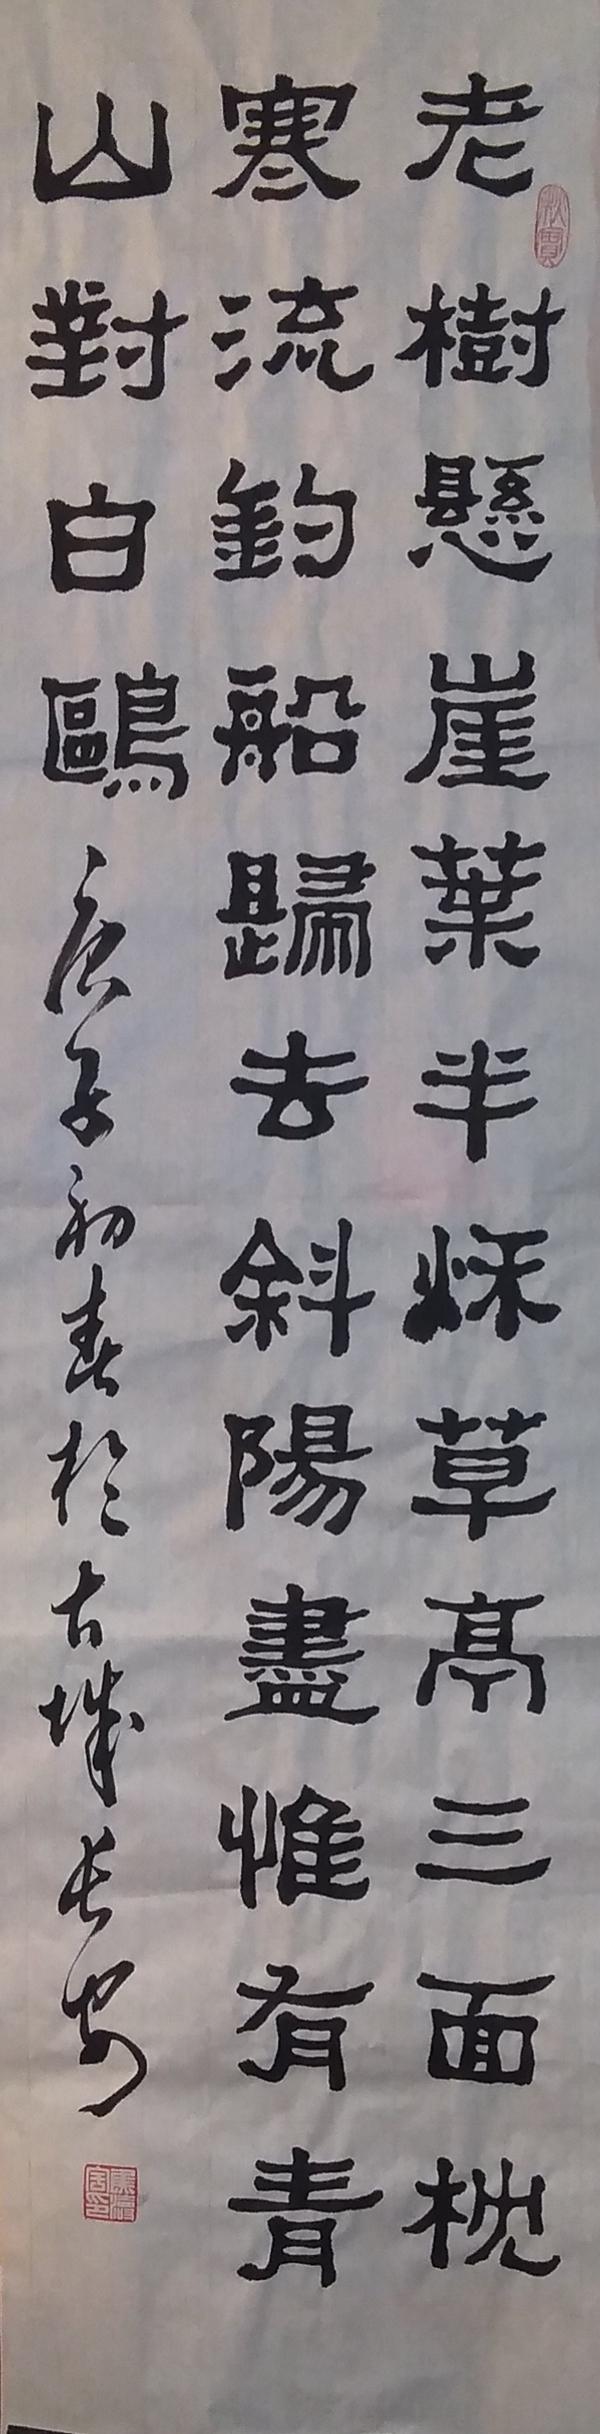 老樹懸崖葉半秌草亭三面枕
寒流釣船歸去斜陽盡惟有青
山對白鷗
庚子初春於古城長安
秋實